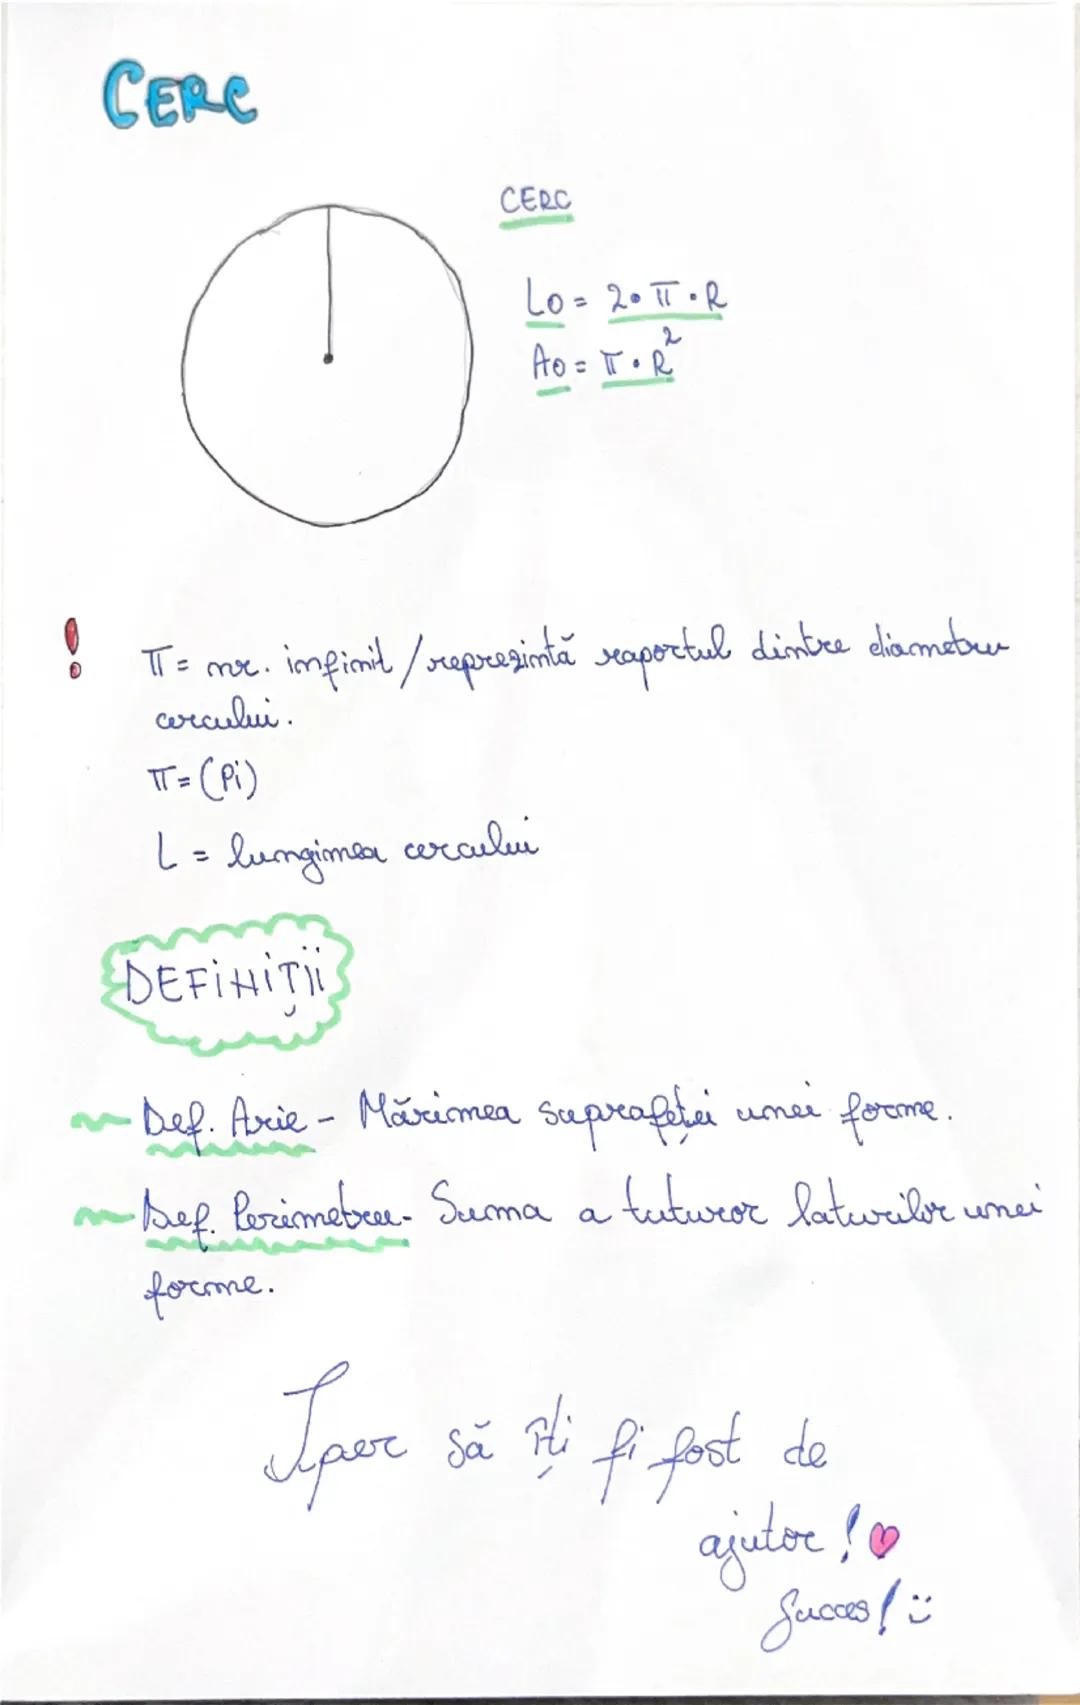 CERC
CERC
Lo = 2•π•R
Ao = π•R²
! π = nr. infinit / reprezintă raportul dintre diametru
cercului.
π = (Pi)
L = lungimea cercului
DEFINIȚII
Def. Arie - Mărimea suprafeței unei forme.
Def. Perimetru - Suma a tuturor laturilor unei
forme.
Sper să îți fi fost de
ajutor!
Succes! :)